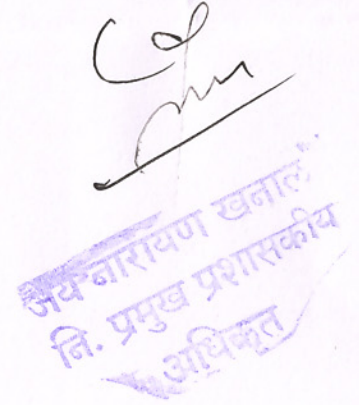 जय नारायण खनाल
नि. प्रमुख प्रशासकीय
अधिकृत